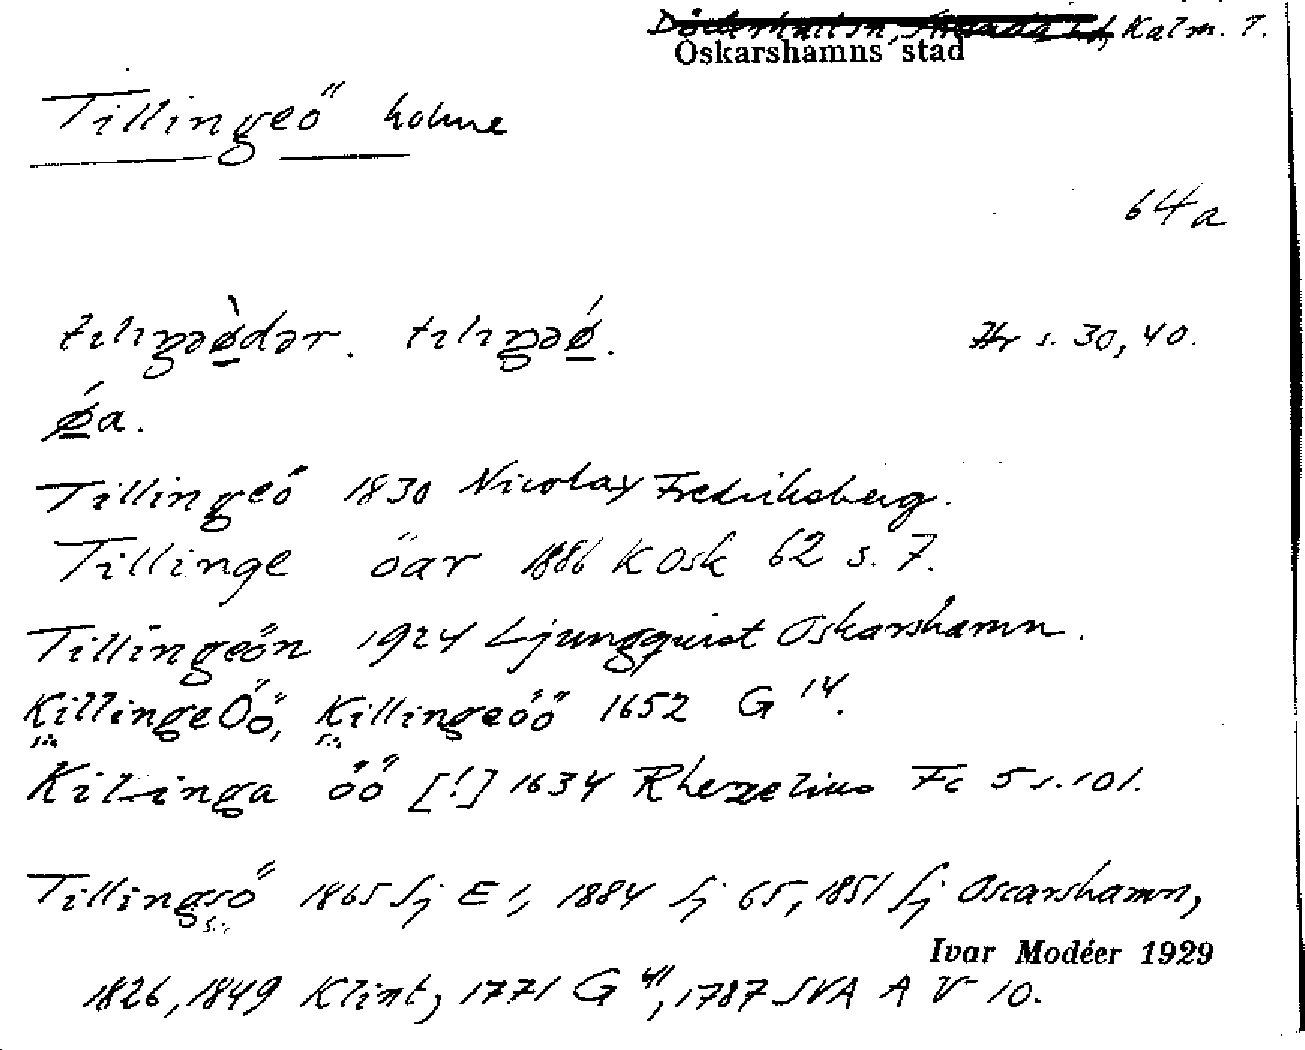 Kalm. l.
Oskarshamns stad
Tillingeö holme
64a
tılıŋəø̀dər. tılıŋəǿ. Hr s. 30, 40.
ǿa.
Tillingeö 1830 Nicolay Fredriksberg.
Tillinge öar 1886 K Osk 62 s. 7.
Tillingeön 1924 Ljungquist Oskarshamn.
KillingeÖö, Killingeöö 1652 G 14.
Kilinga öö [!] 1634 Rhezelius Fc 5 s. 101.
Tillingsö 1865 Sj E 1, 1884 Sj 65, 1851 Sj Oscarshamn,
Ivar Modéer 1929
1826, 1849 Klint, 1771 G 41, 1787 SVA A V 10.